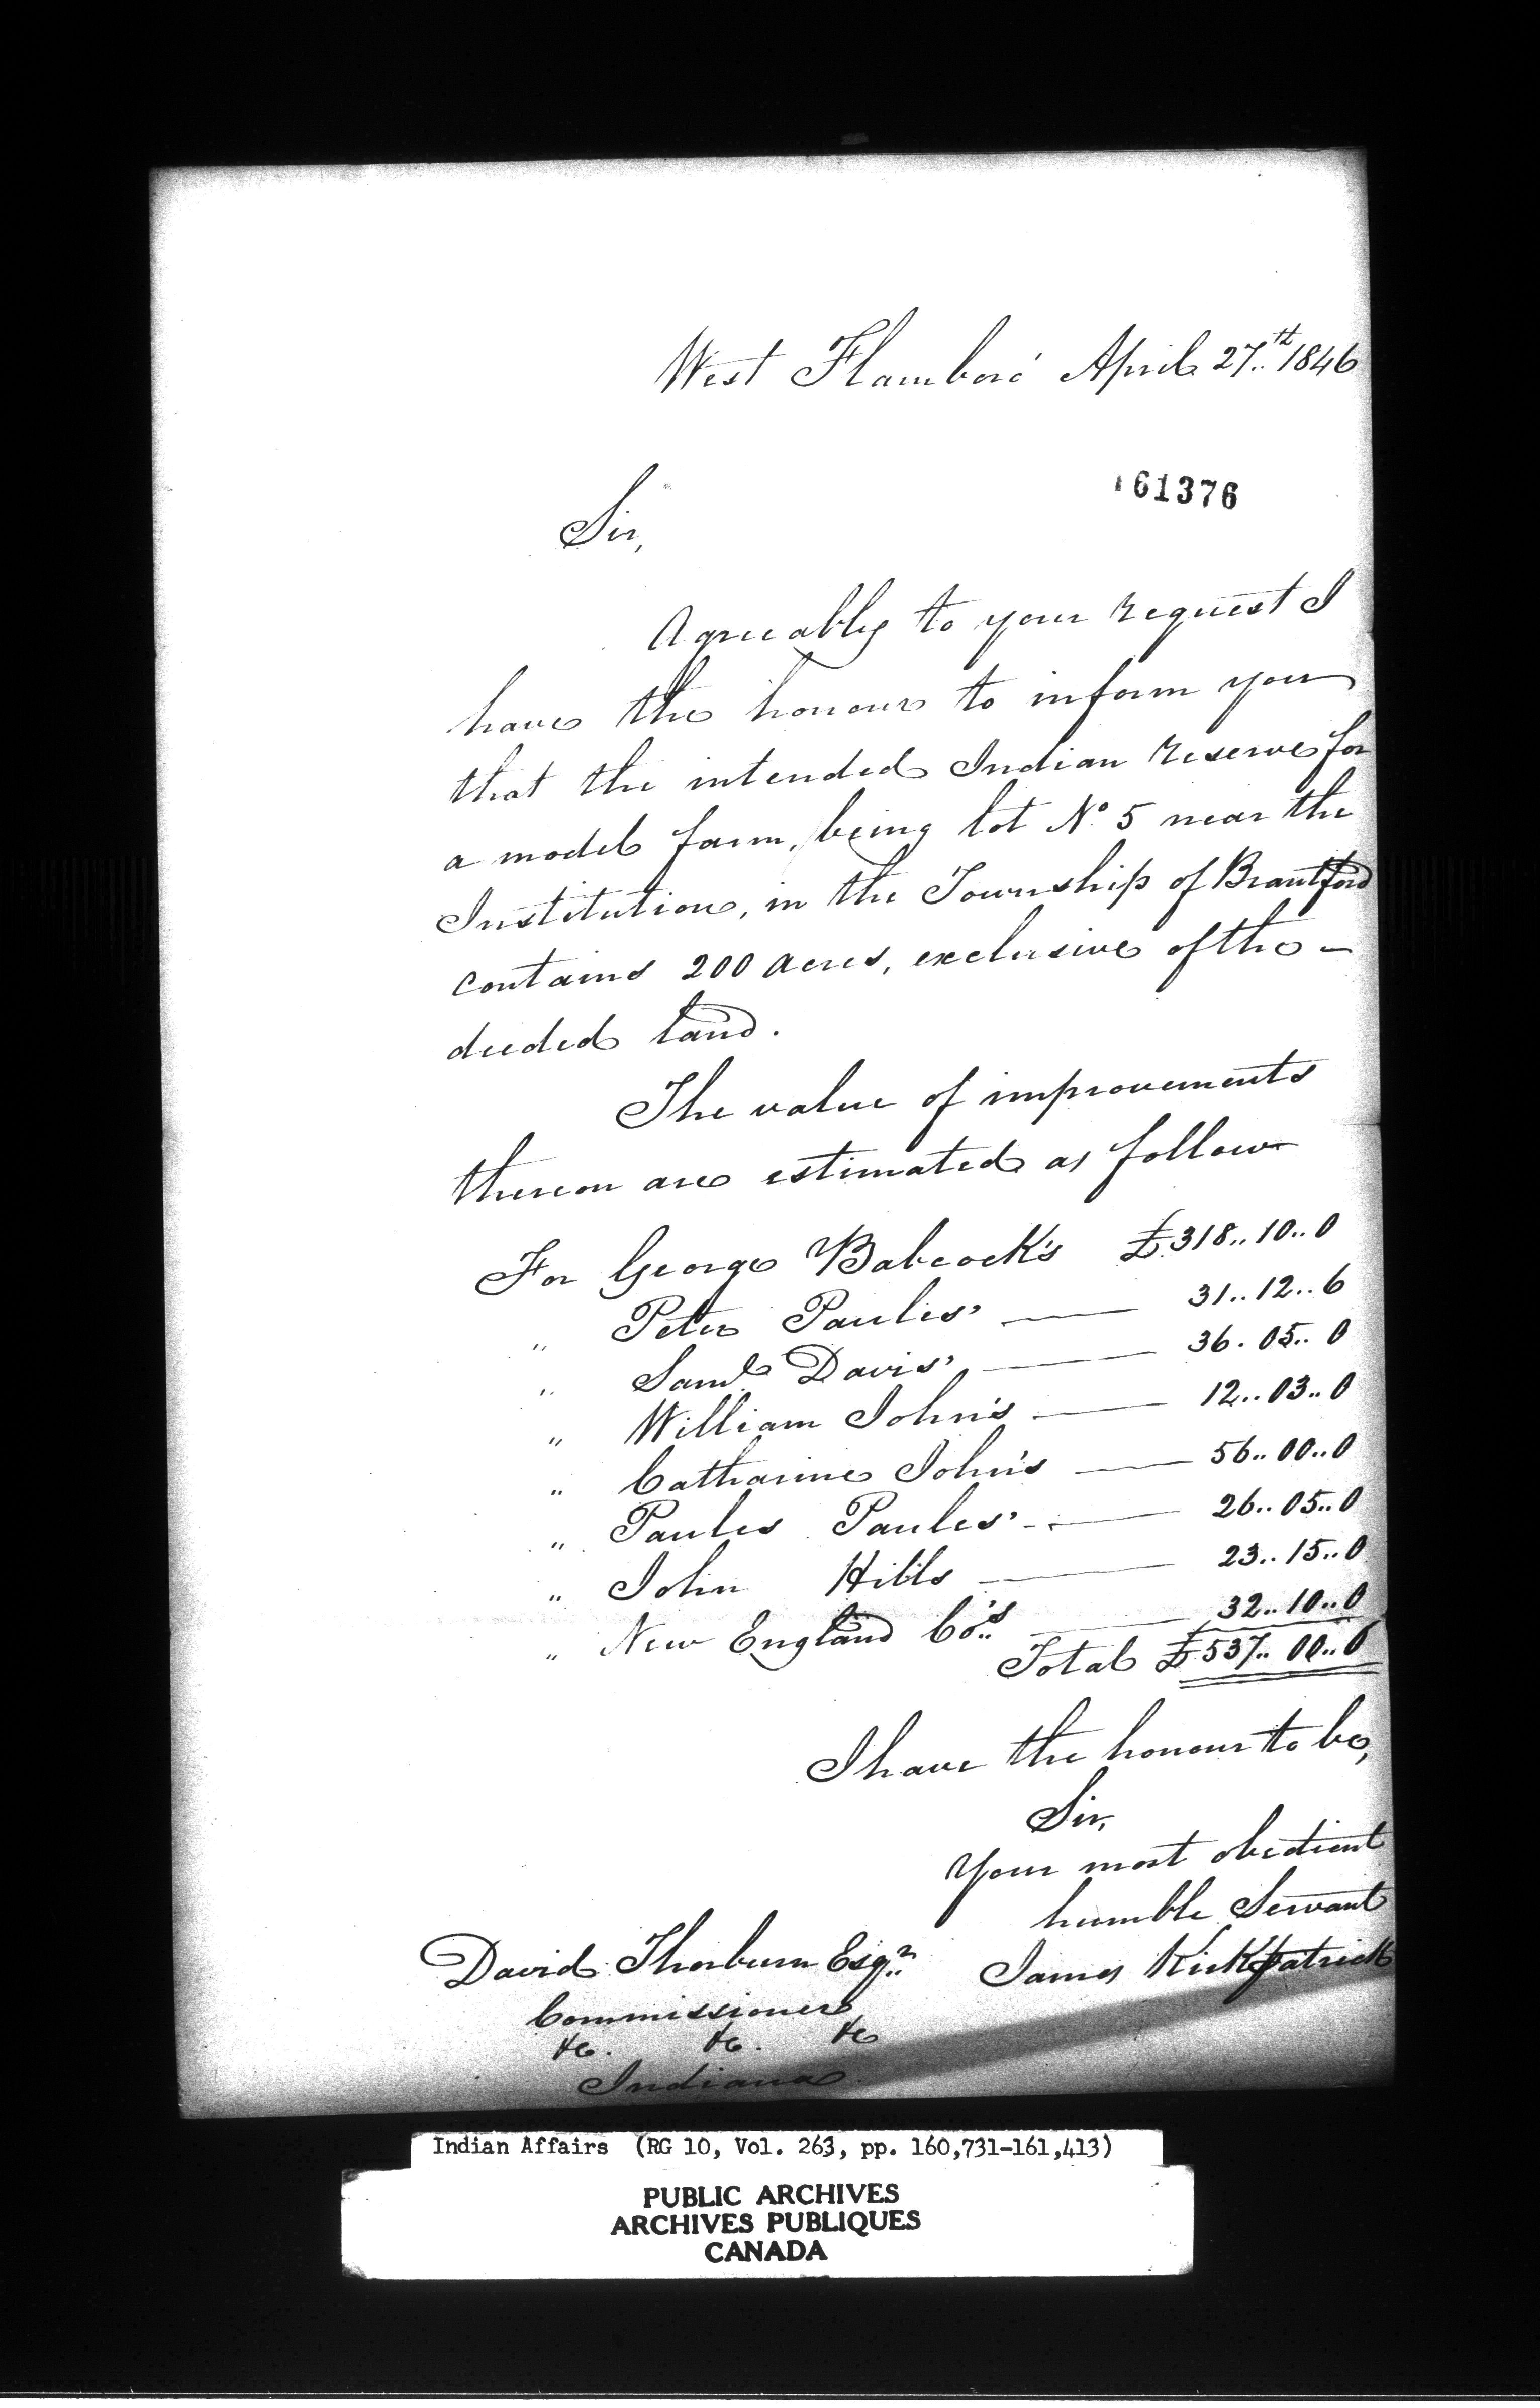 West Flamboro' April 27..th 1846
161376
Sir,
Agreeably to your request I
have the honour to inform you
that the intended Indian reserve for
a model farm, being lot No 5 near the
Institution, in the Township of Brantford
contains 200 acres, exclusive of the –
deeded land.
The value of improvements
thereon are estimated as follow
For George Babcock's £318..10..0
" Peter Paules' — 31..12..6
" Saml Davis' — 36.05..0
" William John's — 12..03..0
" Catharine John's — 56..00..0
" Paules Paules' — 26..05..0
" John Hills — 23..15..0
" New England Co..'s — 32..10..0
Total £537..00..6
I have the honour to be,
Sir,
Your most obedient
humble Servant
James Kirkpatrick
David Thorburn Esqr..
Commissioner
&c. &c. &c
Indiana.
Indian Affairs (RG 10, Vol. 263, pp. 160,731-161,413)
PUBLIC ARCHIVES
ARCHIVES PUBLIQUES
CANADA